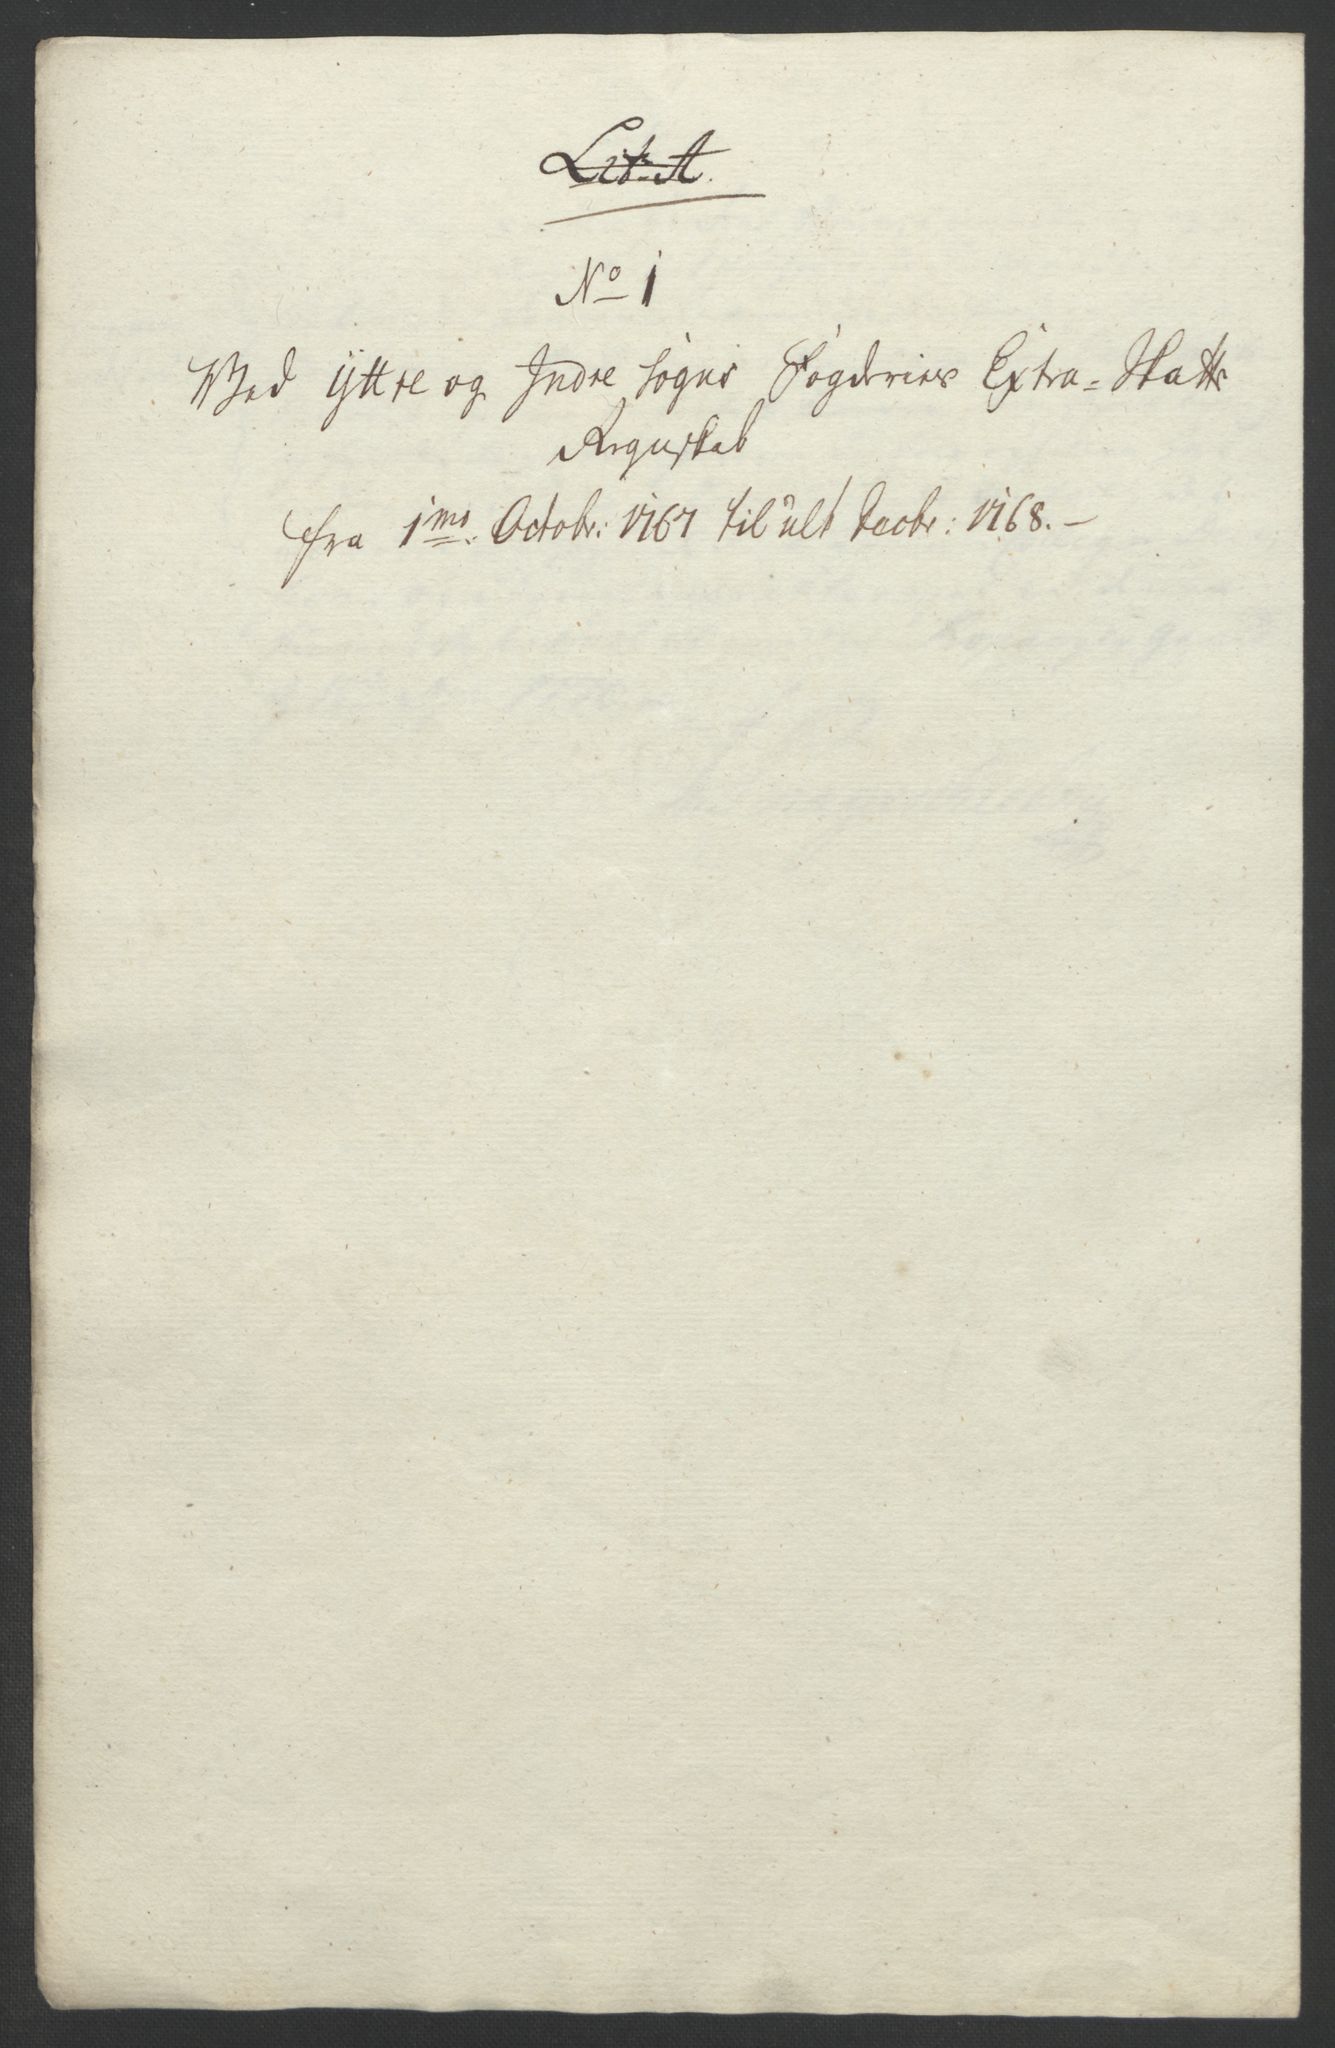 Lit: A.
No 1
Ved ÿttre og Indre Sogns Fogderies Extra-Skatts
Regnskab
fra 1mo: Octobr: 1767 til ult Decbr: 1768. –